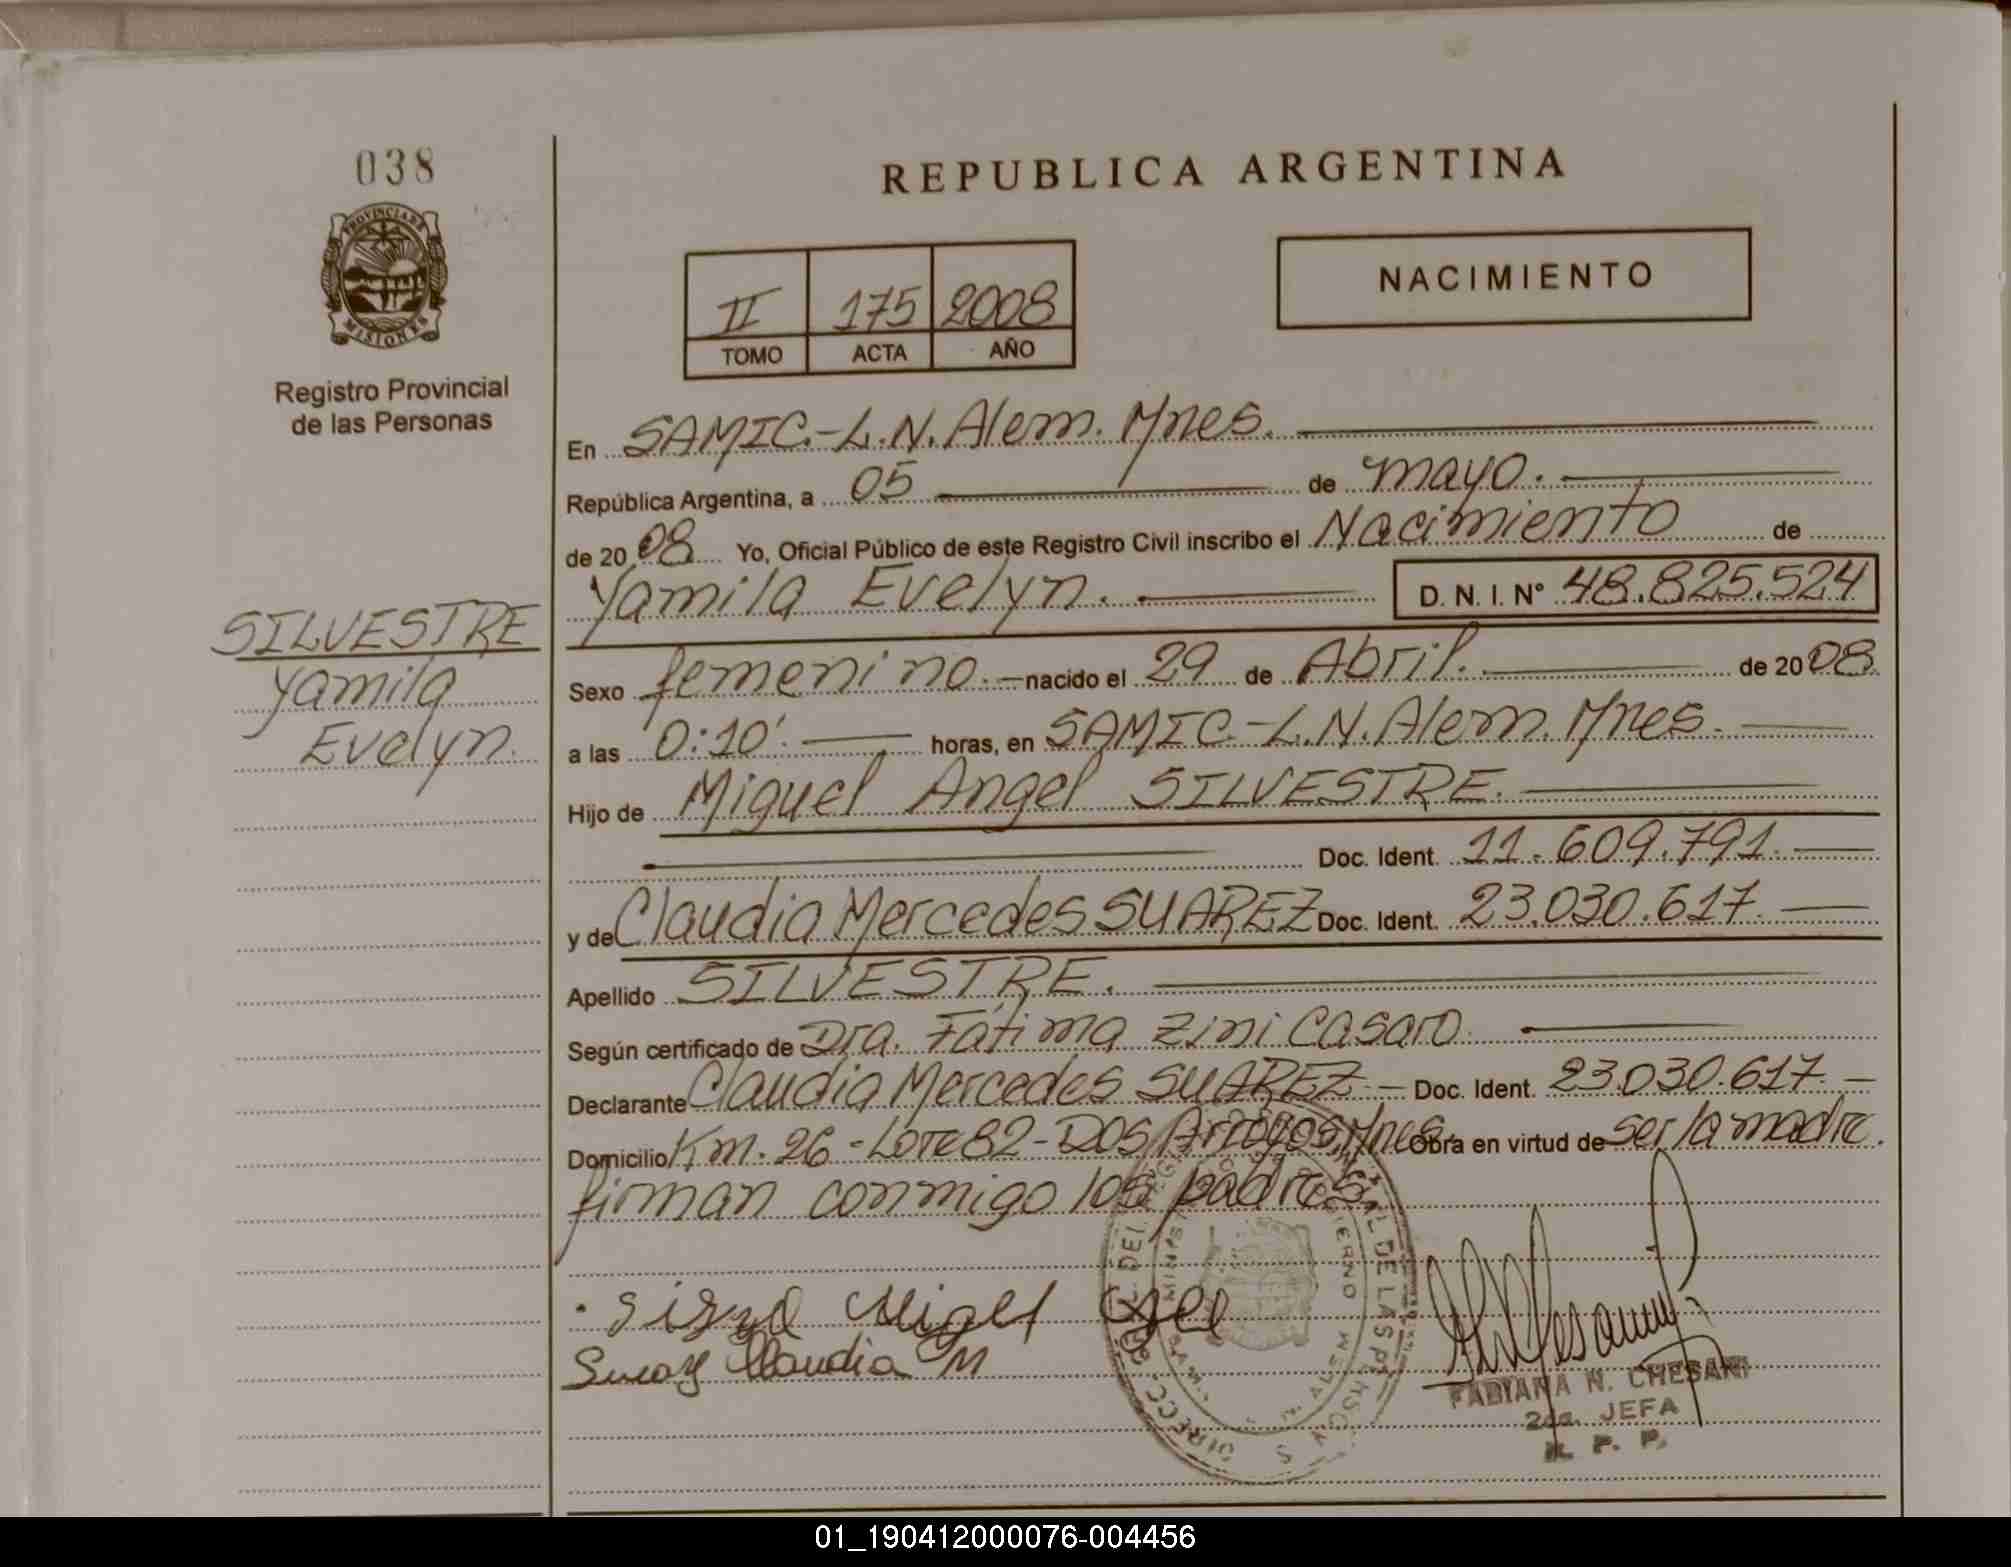 038
PROVINCIA DE
MISIONES
Registro Provincial
de las Personas
SILVESTRE
Yamila
Evelyn.
REPUBLICA ARGENTINA
II 175 2008
TOMO ACTA AÑO
NACIMIENTO
En SAMIC.-L.N.Alem. Mnes.
República Argentina, a 05 de mayo.
de 20 08 Yo, Oficial Público de este Registro Civil inscribo el Nacimiento de
Yamila Evelyn. D. N. I. Nº 48.825.524
Sexo femenino.- nacido el 29 de Abril. de 20 08.
a las 0:10'. horas, en SAMIC.-L.N.Alem. Mnes.
Hijo de Miguel Angel SILVESTRE.
Doc. Ident. 11.609.791.
y de Claudia Mercedes SUAREZ Doc. Ident. 23.030.617.
Apellido SILVESTRE.
Según certificado de Dra. Fátima Zini Casaro.
Declarante Claudia Mercedes SUAREZ - Doc. Ident. 23.030.617. -
Domicilio Km. 26 - Lote 82 - DOS Arroyos, Mnes. Obra en virtud de ser la madre.
firman conmigo los padres
Claudia M
FABIANA N. CHESANI
2da. JEFA
R. P. P.
01_190412000076-004456